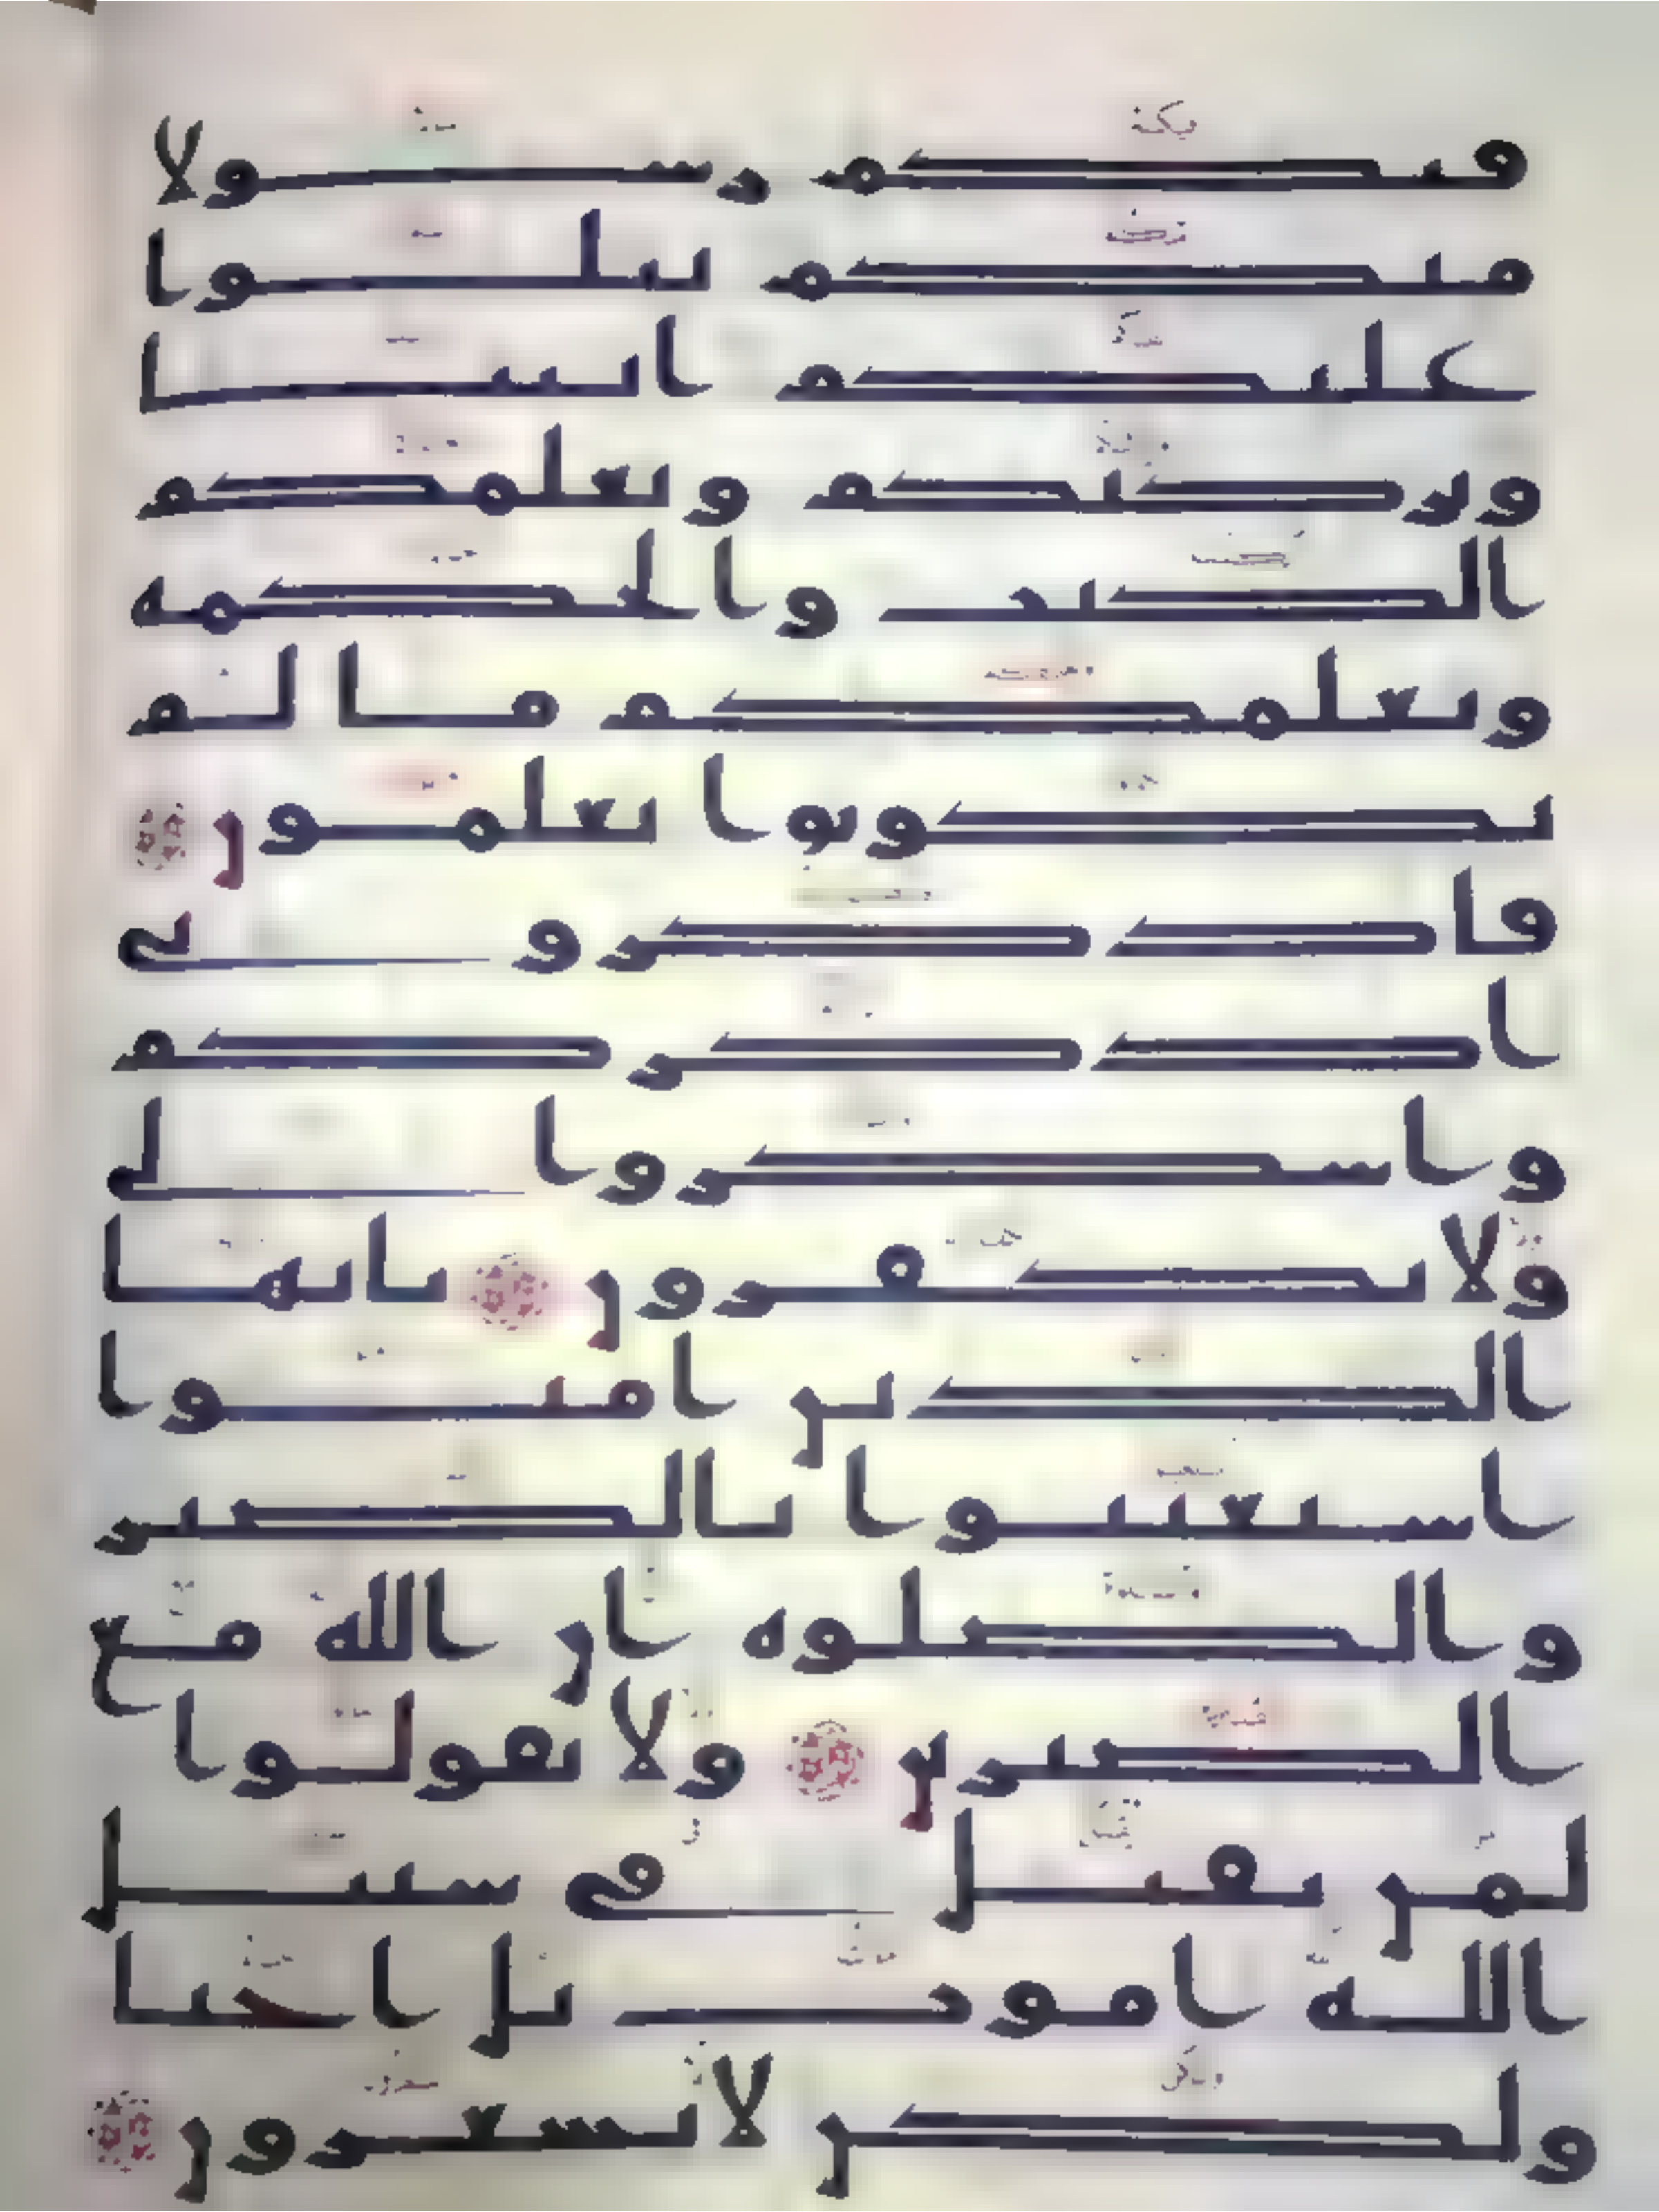 فيكم رسولا
منكم يتلوا
عليكم ايتنا
ويزكيكم ويعلمكم
الكتب والحكمه
ويعلمكم ما لم
تكونوا تعلمون
فاذكروني
اذكركم
واشكروا لي
ولا تكفرون يايها
الذين امنوا
استعينوا بالصبر
والصلوه ان الله مع
الصبرين ولا تقولوا
لمن يقتل في سبيل
الله اموت بل احيا
ولكن لا تشعرون